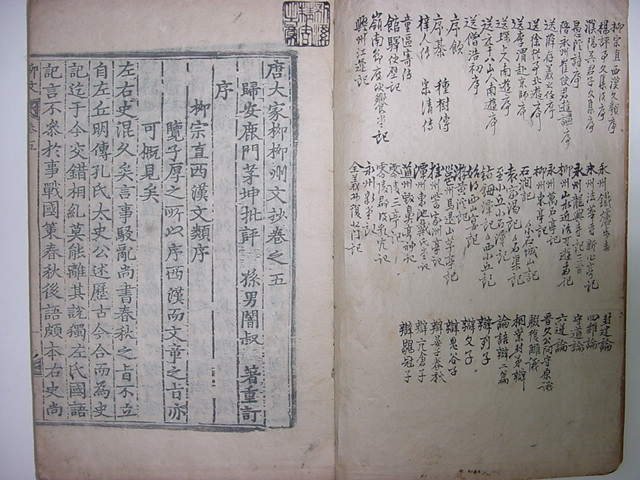 柳宗直西漢文類序
楊評事文集後序
濮陽吳君文集序
愚溪詩序
陪永州崔使君遊讌序
送薛存義之任序
送徐從事北遊序
送李渭赴京師序
送琛上人南遊序
送元十八山人南遊序
送僧浩初序
序飲
序棊 種樹傳
梓人傳 宋清傳
童區寄傳
館驛使壁記
嶺南節度饗軍記
興州江運記
永州鐵爐步志
永州龍興寺記
柳州山水近治可遊者記
柳州東亭記
永州萬石亭記
石澗記 石城山記
袁家渴記 石渠記
至小丘小石潭記
鈷鉧潭記 西小丘記
游黃溪記
邕州馬退山茅亭記
桂州訾家洲亭記
潭州東池戴氏堂記
道州毀鼻亭神記
零陵三亭記
零陵郡復乳穴記
永州新堂記
全義縣復北門記
封建論
四維論
守道論
六逆論
晉文公問守原論
駁復讎議
桐葉封弟辯
論語辯二篇
辯列子
辯文子
辯鬼谷子
辯晏子春秋
辯亢倉子
辯鶡冠子
唐大家柳柳州文抄卷之五
歸安鹿門茅坤批評 孫男闇叔 著重訂
序
柳宗直西漢文類序
覽子厚之所以序西漢而文章之旨亦
可概見矣
左右史混久矣言事駁亂尚書春秋之旨不立
自左丘明傳孔氏太史公述歷古今合而為史
記迄于今交錯相糺莫能離其說獨左氏國語
記言不叅於事戰國策春秋後語頗本右史尚